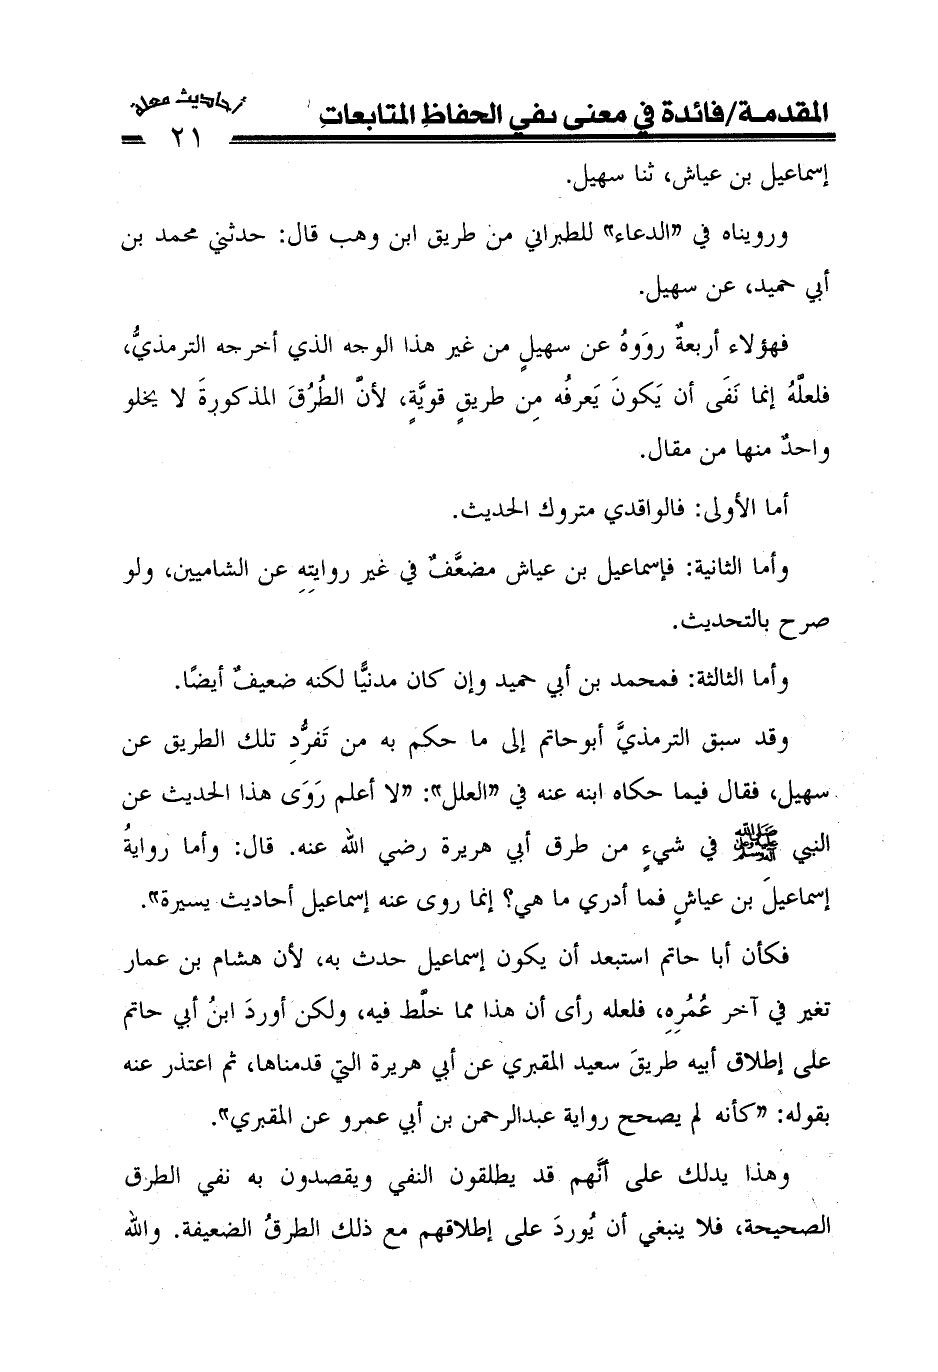 المقدمة/فائدة في معنى نفي الحفاظِ المتابعاتِ
أحاديث معلة
٢١
إسماعيل بن عياش، ثنا سهيل.
ورويناه في «الدعاء» للطبراني من طريق ابن وهب قال: حدثني محمد بن
أبي حميد، عن سهيل.
فهؤلاء أربعةٌ روَوهُ عن سهيلٍ من غير هذا الوجه الذي أخرجه الترمذيُّ،
فلعلَّهُ إنما نَفَى أن يَكونَ يَعرفُه مِن طريقٍ قويَّةٍ، لأنَّ الطُرُقَ المذكورةَ لا يخلو
واحدٌ منها من مقال.
أما الأولى: فالواقدي متروك الحديث.
وأما الثانية: فإسماعيل بن عياش مضعَّفٌ في غير روايتِهِ عن الشاميين، ولو
صرح بالتحديث.
وأما الثالثة: فمحمد بن أبي حميد وإن كان مدنيًّا لكنه ضعيفٌ أيضًا.
وقد سبق الترمذيَّ أبوحاتم إلى ما حكم به من تَفرُّدِ تلك الطريق عن
سهيل، فقال فيما حكاه ابنه عنه في «العلل»: «لا أعلم رَوَى هذا الحديث عن
النبي ﷺ في شيءٍ من طرق أبي هريرة رضي الله عنه. قال: وأما روايةُ
إسماعيلَ بن عياشٍ فما أدري ما هي؟ إنما روى عنه إسماعيل أحاديث يسيرة».
فكأن أبا حاتم استبعد أن يكون إسماعيل حدث به، لأن هشام بن عمار
تغير في آخر عُمُرِهِ، فلعله رأى أن هذا مما خلَّط فيه، ولكن أوردَ ابنُ أبي حاتم
على إطلاق أبيه طريقَ سعيد المقبري عن أبي هريرة التي قدمناها، ثم اعتذر عنه
بقوله: «كأنه لم يصحح رواية عبدالرحمن بن أبي عمرو عن المقبري».
وهذا يدلك على أنَّهم قد يطلقون النفي ويقصدون به نفي الطرق
الصحيحة، فلا ينبغي أن يُوردَ على إطلاقهم مع ذلك الطرقُ الضعيفة. والله